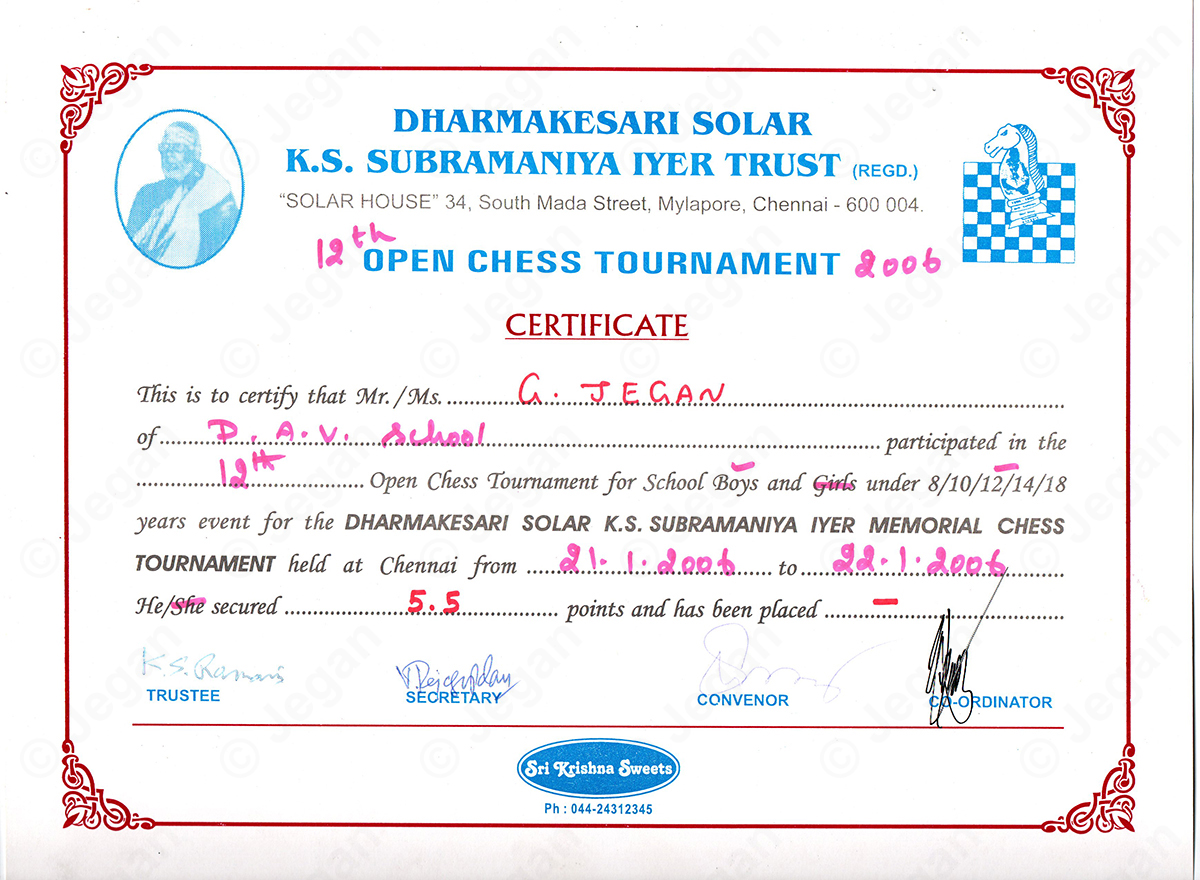 DHARMAKESARI SOLAR
K.S. SUBRAMANIYA IYER TRUST (REGD.)
"SOLAR HOUSE" 34, South Mada Street, Mylapore, Chennai - 600 004.
12th OPEN CHESS TOURNAMENT 2006
CERTIFICATE
This is to certify that Mr./Ms. G. JEGAN
of D.A.V. school participated in the
12th Open Chess Tournament for School Boys and Girls under 8/10/12/14/18
years event for the DHARMAKESARI SOLAR K.S. SUBRAMANIYA IYER MEMORIAL CHESS
TOURNAMENT held at Chennai from 21.1.2006 to 22.1.2006
He/She secured 5.5 points and has been placed –
K.S. Ramani
TRUSTEE SECRETARY CONVENOR CO-ORDINATOR
Sri Krishna Sweets
Ph : 044-24312345
© Jegan